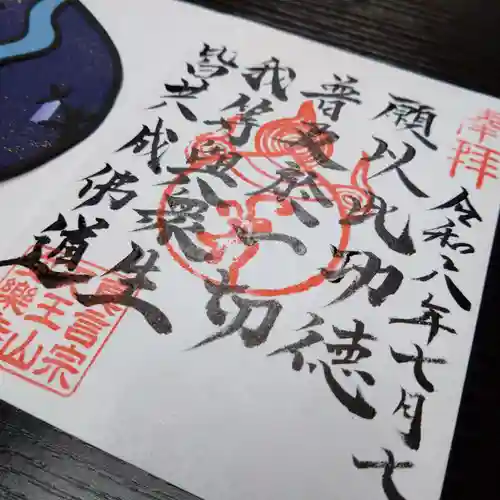 奉拝
令和八年七月七
願以此功徳
普及於一切
我等與衆生
皆共成佛道
眞言宗
王山
樂